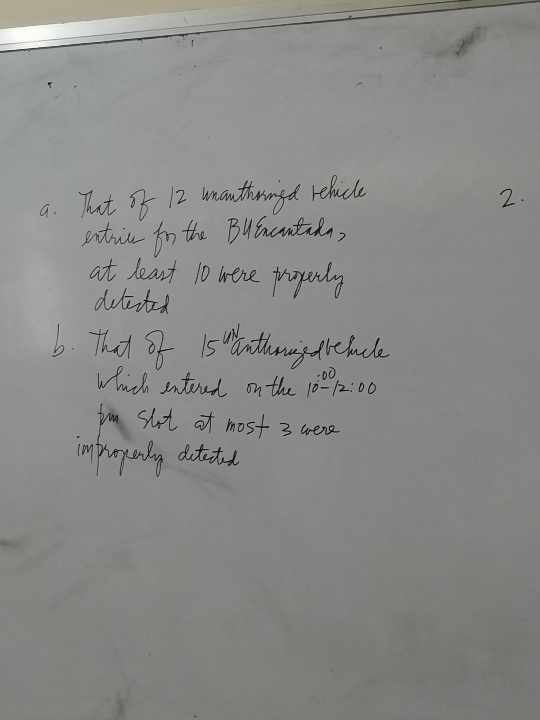 a. That of 12 unauthorized vehicle
entries for the BUEncantada,
at least 10 were properly
detected
b. That of 15 UNauthorized vehicle
which entered on the 10:00-12:00
pm slot at most 3 were
improperly detected
2.